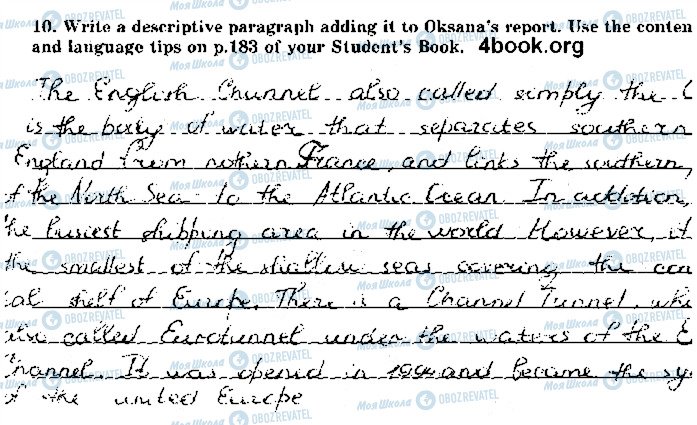 10. Write a descriptive paragraph adding it to Oksana's report. Use the conten
and language tips on p.183 of your Student's Book. 4book.org
The English Channel also called simply the C
is the body of water that separates southern
England from nothern France, and links the southern,
of the North Sea to the Atlantic Ocean In addition,
the busiest shipping area in the world However, it
the smallest of the shallow seas covering the con
tal shelf of Europe. There is a Channel Tunnel, whi
also called Eurotunnel under the waters of the E
Channel. It was opened in 1994 and became the sy
of the united Europe